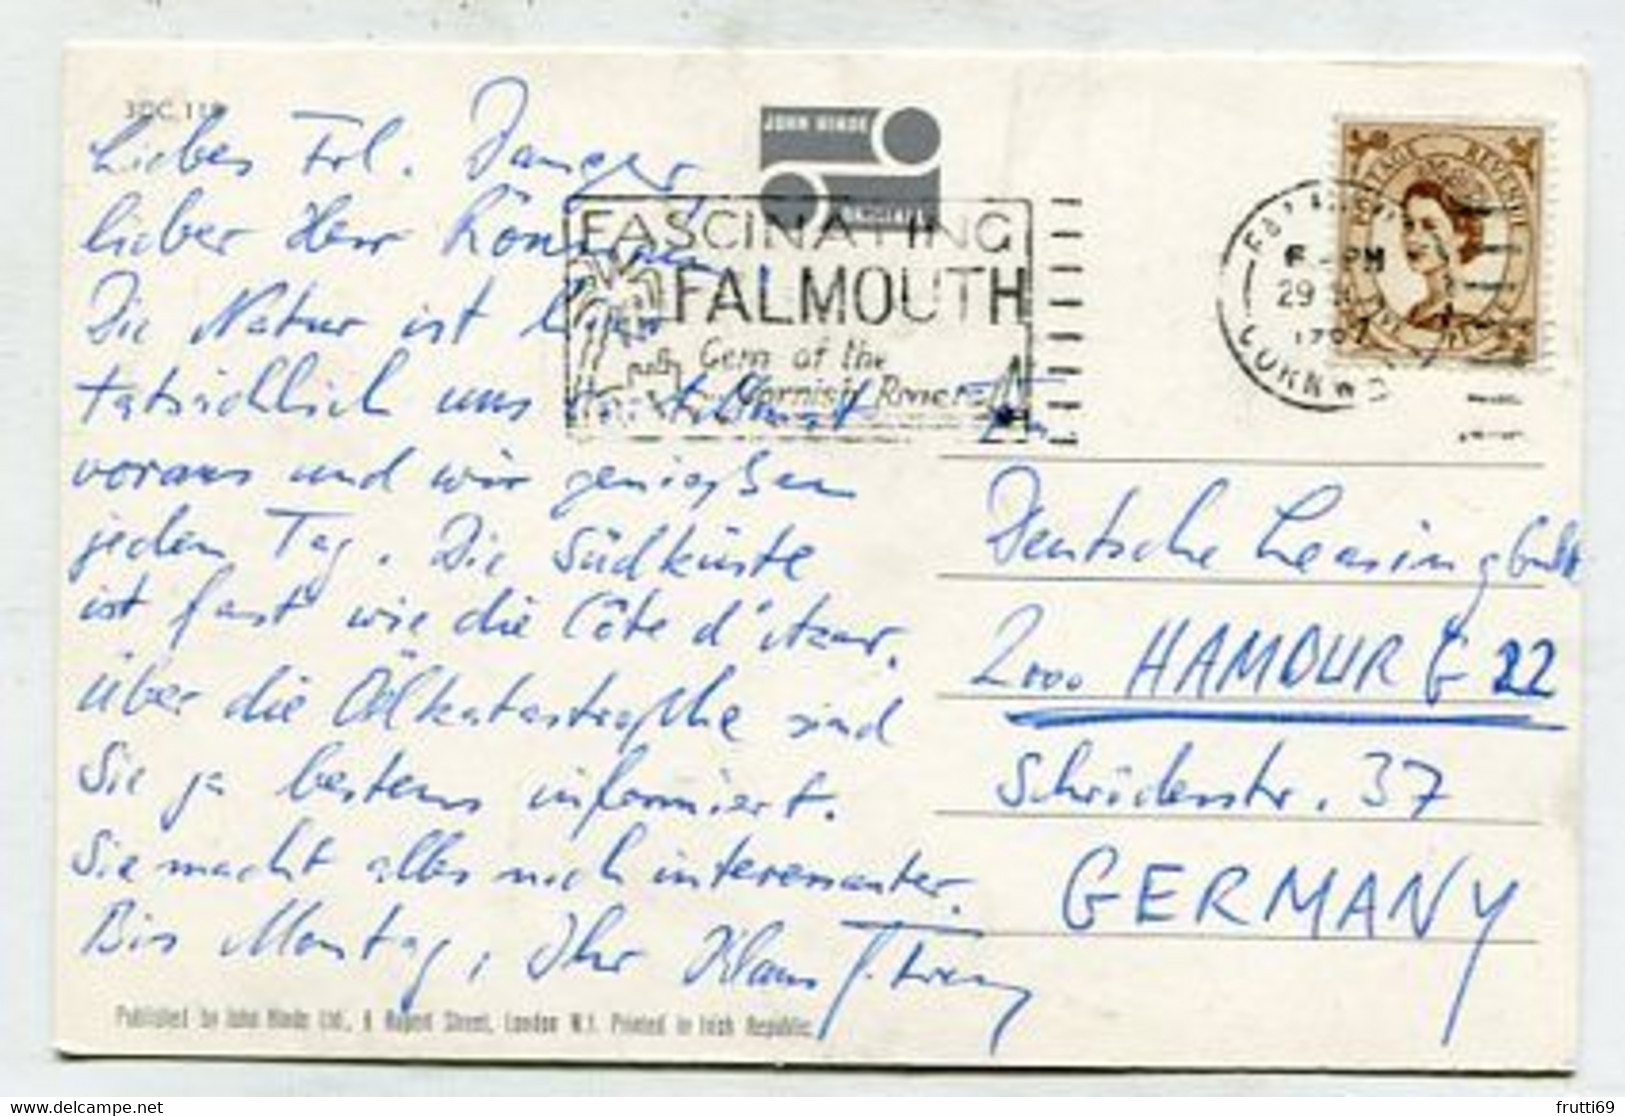 3DC. 118
Liebes Frl. Danger,
lieber Herr
Die Natur ist hier
tatsächlich uns
voraus und wir genießen
jeden Tag. Die Südküste
ist fast wie die Côte d'Azur.
Über die Ölkatastrophe sind
Sie ja bestens informiert.
Sie macht alles noch interessanter.
Bis Montag, Ihr Klaus
JOHN HINDE
FASCINATING
FALMOUTH
Gem of the
Cornish Riviera
POSTAGE REVENUE
PM
29
CORNWALL
Deutsche Leasing GmbH
2000 HAMBURG 22
37
GERMANY
Published by John Hinde Ltd., 6 Rupert Street, London W.1. Printed in Irish Republic.
frutti69